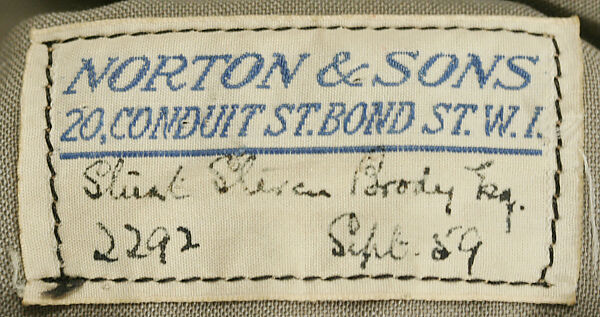 NORTON & SONS
20, CONDUIT ST. BOND ST. W.I.
Steven Brody Esq.
2292 Sept. 59